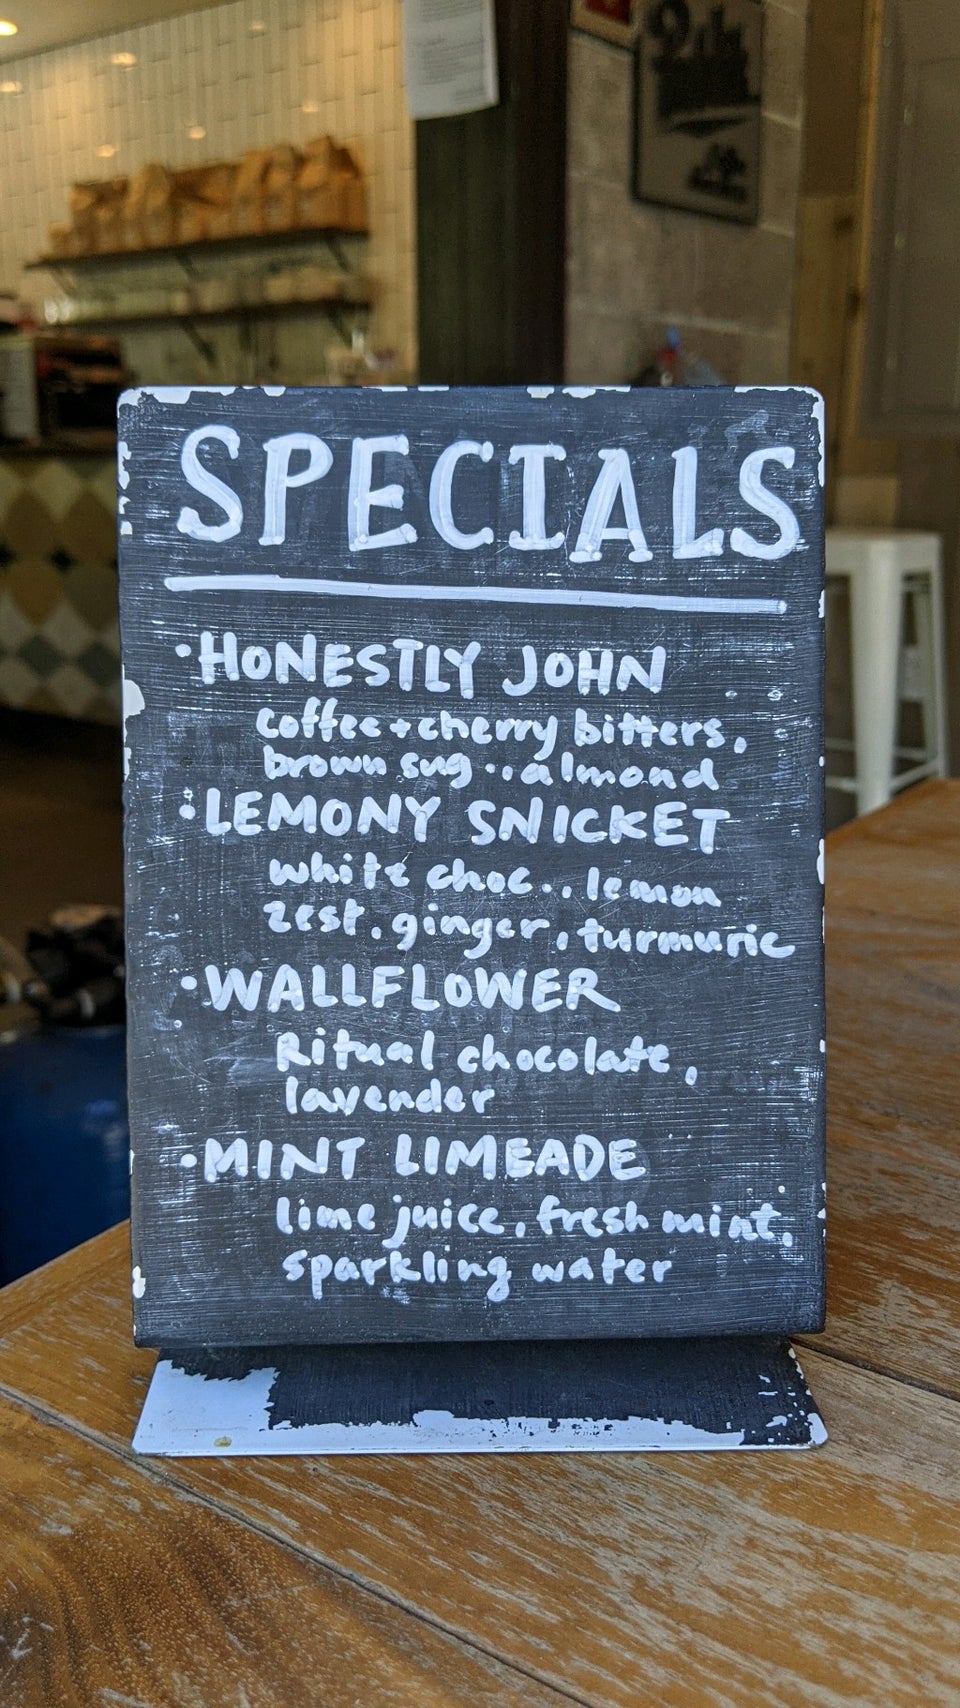 SPECIALS
·HONESTLY JOHN
coffee + cherry bitters,
brown sug.., almond
·LEMONY SNICKET
white choc.., lemon
zest, ginger, turmuric
·WALLFLOWER
Ritual chocolate,
lavender
·MINT LIMEADE
lime juice, fresh mint,
sparkling water